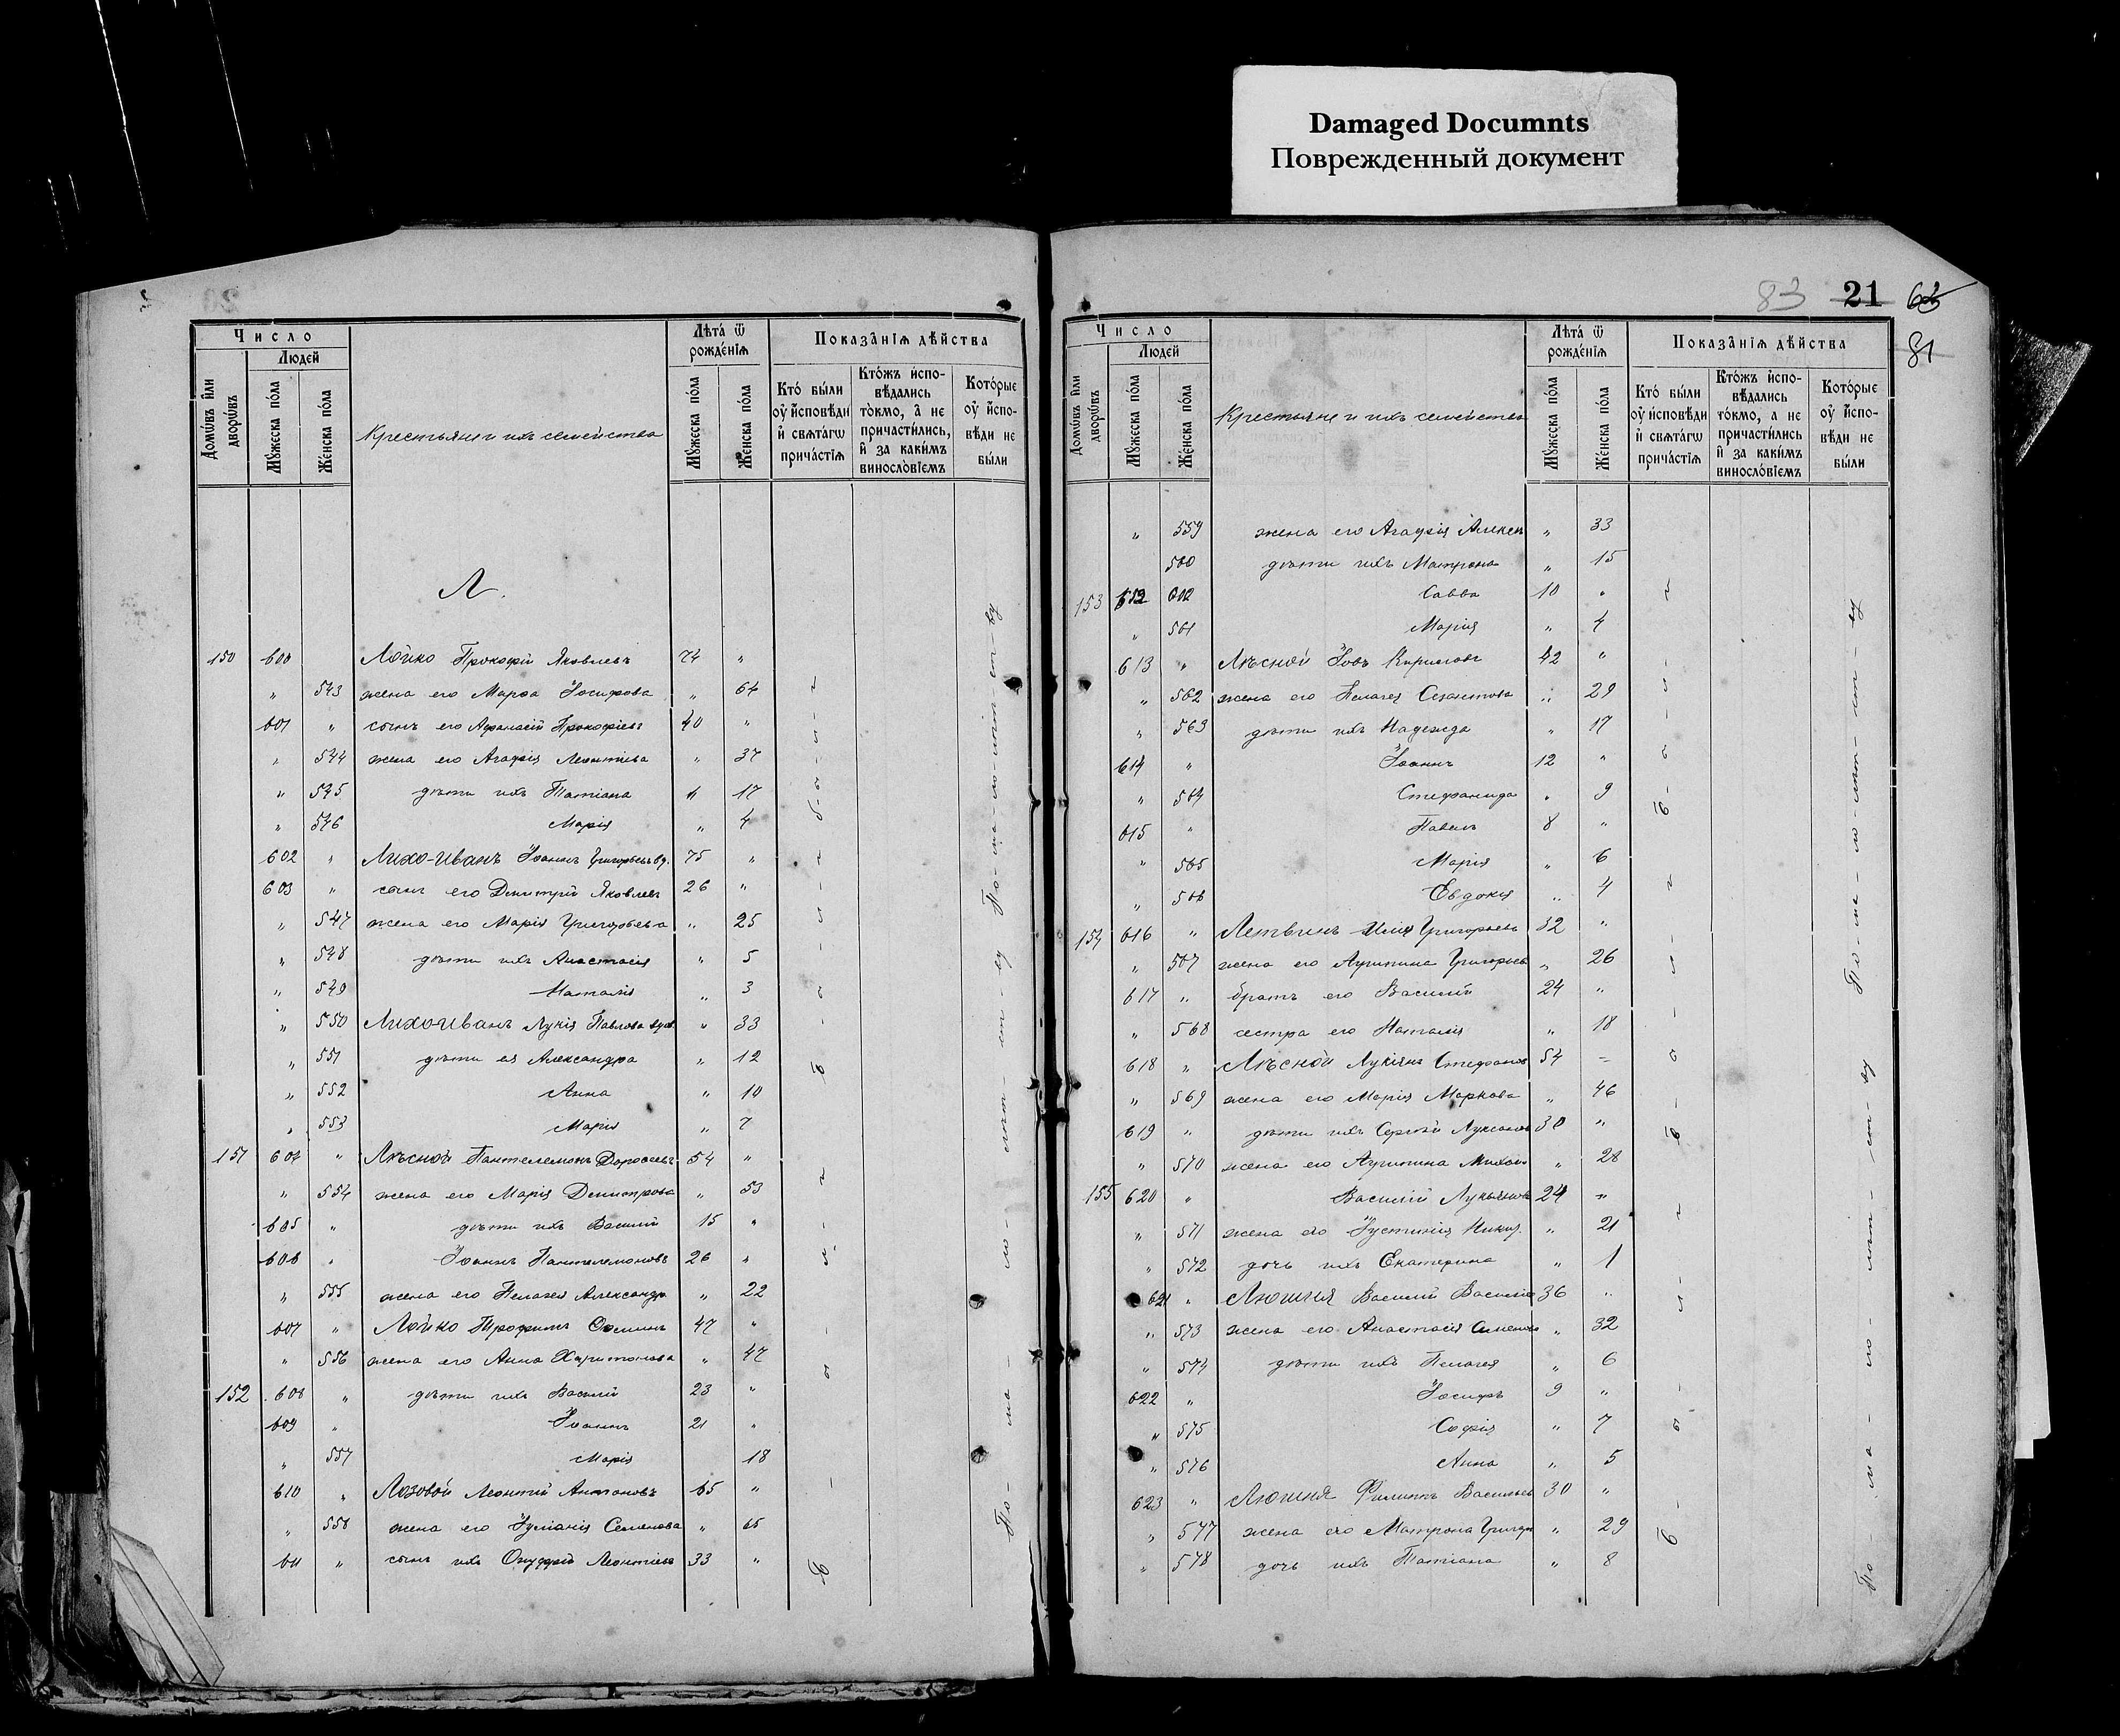 Damaged Documnts
Поврежденный документ
Число
Людей
Домѡвъ и҆лѝ дворѡ́въ
Мꙋ́жеска по́ла
Же́нска по́ла
Крестьяне и ихъ семейства
Лѣта́ ѿ рожде́нїѧ
Мꙋ́жеска по́ла
Же́нска по́ла
Показа̑нїѧ дѣ́йства
Кто̀ бы́ли оу҆ и҆сповѣ́ди и҆ свѧта́гѡ прича́стїѧ
Кто́жъ и҆сповѣ́дались то́кмо, а҆ не причасти́лись, и҆ за каки́мъ винословїемъ
Кото́рые оу҆ и҆сповѣ́ди не бы́ли
Л.
150 600 Лойко Прокофій Яковлевъ 74 "
" 543 жена его Марѳа Іосифова " 64
601 " сынъ его Афанасій Прокофіевъ 40 "
" 544 жена его Агафія Леонтіева " 37
" 545 дѣти ихъ Татіана " 17
" 546 Марія " 4
602 " Лихо-Иванъ Іоаннъ Григорьевъ вд. 75 "
603 " сынъ его Димитрій Яковлевъ 26 "
" 547 жена его Марія Григорьева " 25
" 548 дѣти ихъ Анастасія " 5
" 549 Наталія " 3
" 550 Лихо-Иванъ Лукія Павлова вдов. " 33
" 551 дѣти ея Александра " 12
" 552 Анна " 10
" 553 Марія " 7
151 604 " Лѣсной Пантелемонъ Дороѳеевъ 54 "
" 554 жена его Марія Димитрова " 53
605 " дѣти ихъ Василій 15 "
606 " Іоаннъ Пантелемоновъ 26 "
" 555 жена его Пелагея Александр " 22
607 " Лойко Трофимъ Осиинъ 47 "
" 556 жена его Анна Харитонова " 47
152 608 " дѣти ихъ Василій 23 "
609 " Іоаннъ 21 "
" 557 Марія 18
610 " Лозовой Леонтій Антоновъ 65 "
" 558 жена его Іуліанія Семенова " 65
611 " сынъ ихъ Онуфрій Леонтіевъ 33 "
83 21 63
81
Число
Людей
Домѡвъ и҆лѝ дворѡ́въ
Мꙋ́жеска по́ла
Же́нска по́ла
Крестьяне и ихъ семейства
Лѣта́ ѿ рожде́нїѧ
Мꙋ́жеска по́ла
Же́нска по́ла
Показа̑нїѧ дѣ́йства
Кто̀ бы́ли оу҆ и҆сповѣ́ди и҆ свѧта́гѡ прича́стїѧ
Кто́жъ и҆сповѣ́дались то́кмо, а не причасти́лись и҆ за каки́мъ винословїемъ
Кото́рые оу҆ и҆сповѣ́ди не бы́ли
" 559 жена его Агафія Алексѣ " 33
560 дѣти ихъ Матрона " 15
153 612 Савва 10 "
" 561 Марія " 4
613 " Лѣсной Іовъ Кириловъ 42 "
" 562 жена его Пелагея " 29
" 563 дѣти ихъ Надежда " 17
614 " Іоаннъ 12 "
" 564 Стефанида " 9
615 " Павелъ 8 "
" 565 Марія " 6
" 566 Евдокія " 4
154 616 " Летвинъ Илія Григорьевъ 32 "
" 567 жена его Агрипина Григорьев " 26
617 " братъ его Василій 24 "
" 568 сестра его Наталія " 18
618 " Лѣсной Лукіянъ Стефанов 54 "
" 569 жена его Марія Маркова " 46
619 " дѣти ихъ Сергѣй Лукіанов 30 "
" 570 жена его Агрипина Михаи " 28
155 620 " Василій Лукьянов 24 "
" 571 жена его Іустинія Никиф. " 21
" 572 дочь ихъ Екатерина " 1
621 " Люшня Василій Василіе 36 "
" 573 жена его Анастасія Семенов " 32
" 574 дѣти ихъ Пелагея " 6
622 " Іосифъ 9 "
" 575 Софія " 7
" 576 Анна " 5
623 " Люшня Филиппъ Васильев 30 "
" 577 жена его Матрона Григор " 29
" 578 дочь ихъ Татіана " 8